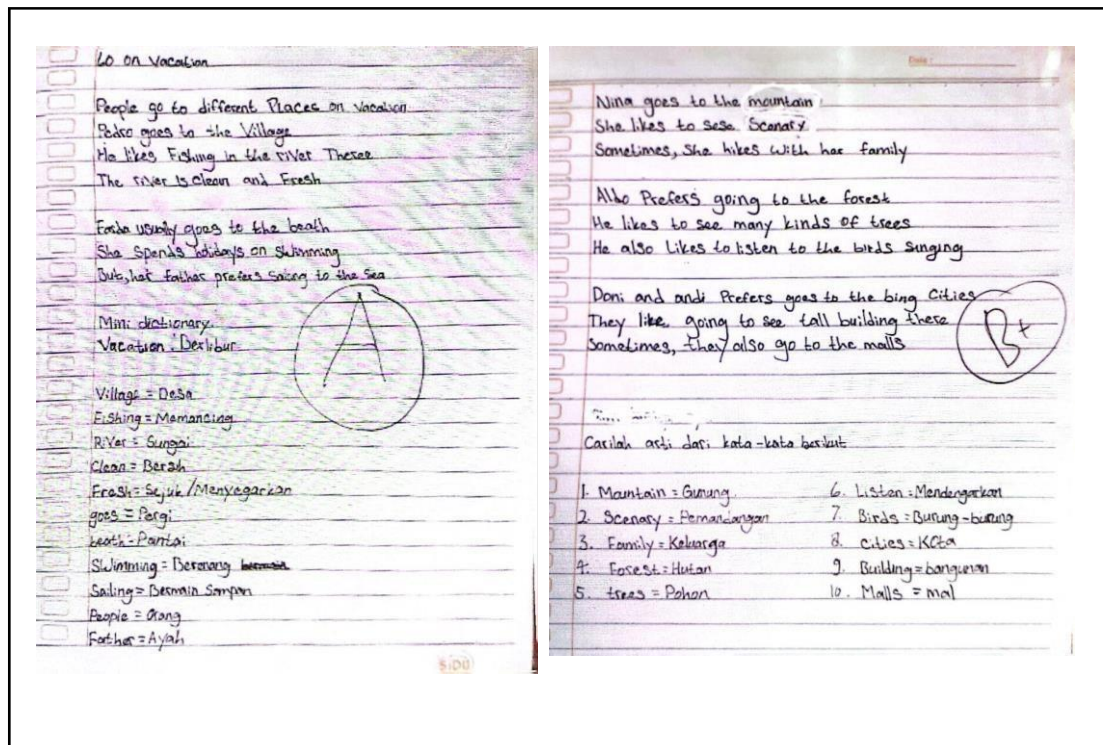 Go on vacation
People go to different Places on vacation
Pedro goes to the Village
He likes Fishing in the river Theree
The river Is Clean and Fresh
usually goes to the beath
She Spends holidays on Swimming
But, her father prefers to the Sea
Mini dictionary
Vacation : Berlibur
Village = Desa
Fishing = Memancing
River = Sungai
Clean = Bersih
Fresh = Sejuk / Menyegarkan
goes = Pergi
beath = Pantai
Swimming = Berenang
Sailing = Bermain Sampan
People = Orang
Father = Ayah
A
SiDU
Date :
Nina goes to the mountain
She likes to sese Scenary
Sometimes, She hikes with her family
Prefers going to the forest
He likes to see many kinds of trees
He also Likes to listen to the birds singing
Doni and andi Prefers goes to the bing Cities
They like going to see tall building there
Sometimes, they also go to the malls
B+
Carilah arti dari kata-kata berikut
1. Mountain = Gunung
2. Scenary = Pemandangan
3. Family = Keluarga
4. Forest = Hutan
5. trees = Pohon
6. Listen = Mendengarkan
7. Birds = Burung-burung
8. cities = KOta
9. Building = bangunan
10. Malls = mal